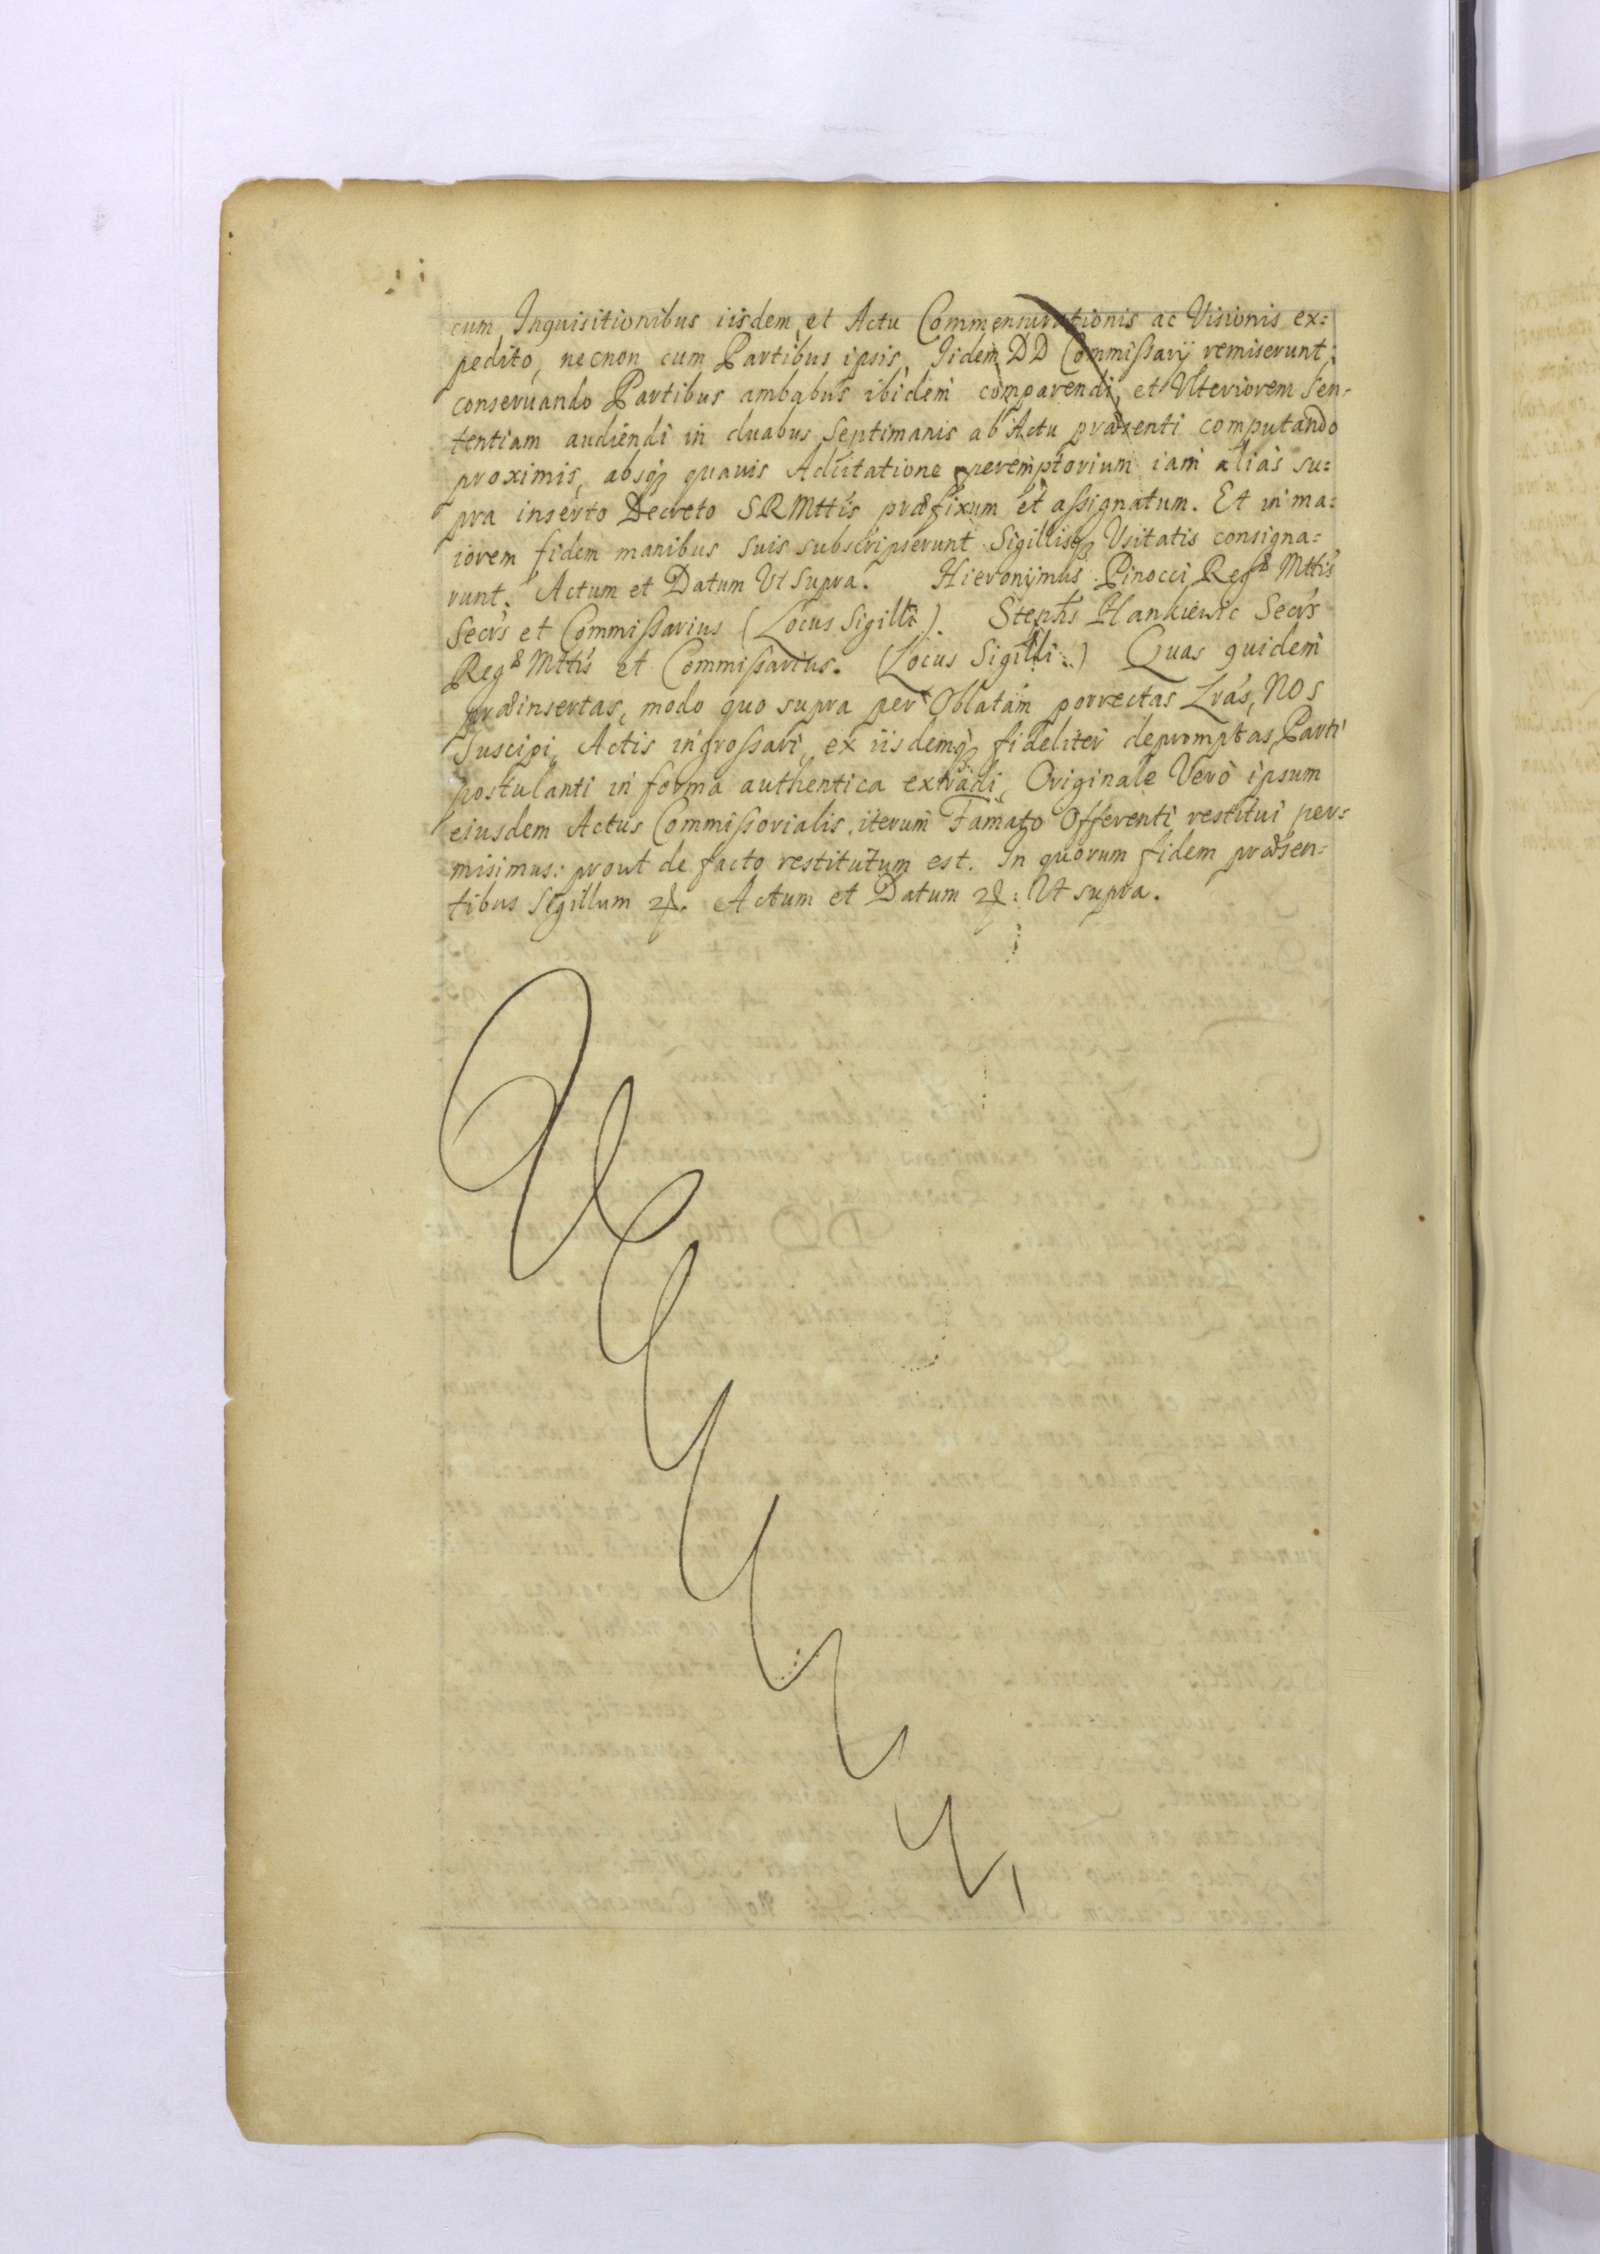 cum Inquisitionibus iisdem et Actu Commensurationis ac Visionis ex=
pedito, necnon cum Partibus ipsis, Iidem DD Commissarij remiserunt;
conseruando Partibus ambabus ibidem comparendi, et Vlteriorem Sen-
tentiam audiendi in duabus Septimanis ab Actu præsenti computando
proximis, absq quauis Adcitatione peremptorium iam alias su=
pra inserto Decreto SRMttis præfixum et assignatum. Et in ma=
iorem fidem manibus suis subscripserunt Sigillisq Vsitatis consigna=
runt. Actum et Datum Ut supra. Hieronymus Pinocci Regæ Mttis
Secrs et Commissarius (Locus Sigilli). Stephs Hankiewic Secrs
Regæ Mttis et Commissarius. (Locus Sigilli.) Quas quidem
præinsertas, modo quo supra per Oblatam porrectas Lras, NOS
Suscipi, Actis ingrossari, ex iisdemq fideliter depromptas, Parti
postulanti in forma authentica extradi, Originale Verò ipsum
eiusdem Actus Commissorialis iterum Famato Offerenti restitui per=
misimus: prout de facto restitutum est. In quorum fidem præsen=
tibus Sigillum &. Actum et Datum &: Ut supra.